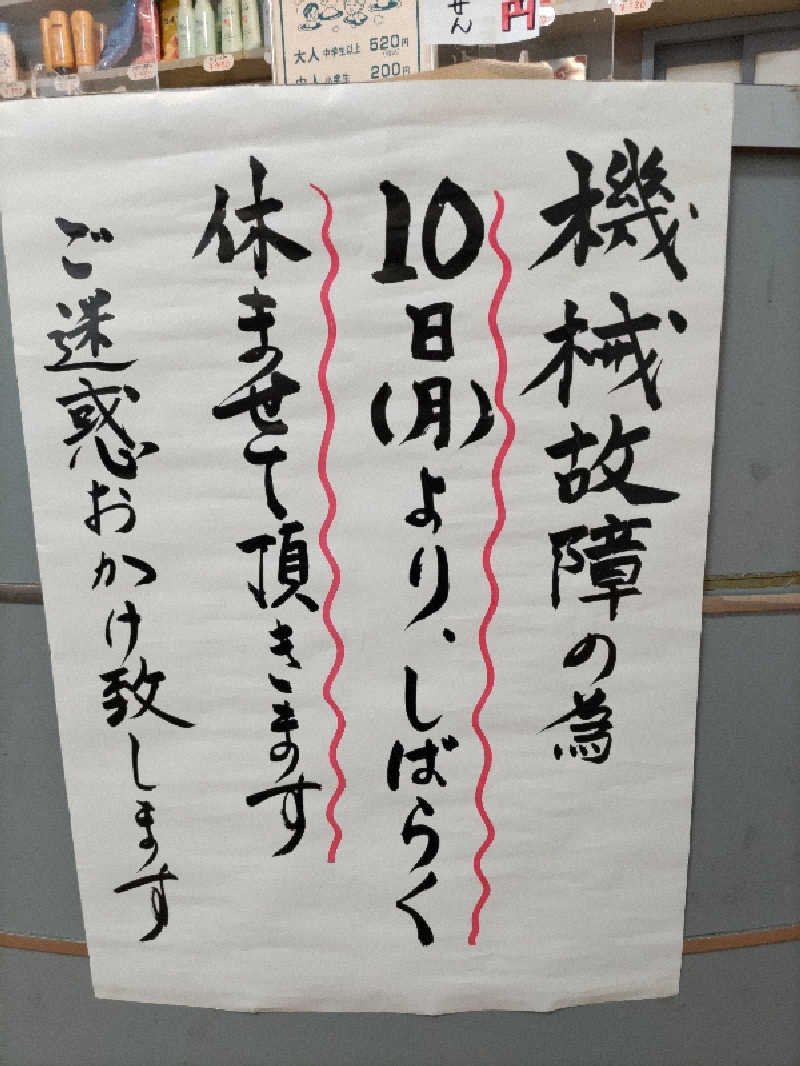 機械故障の為
10日(月)より、しばらく
休ませて頂きます
ご迷惑おかけ致します
大人 中学生以上 520円
小学生 200円
せん
円